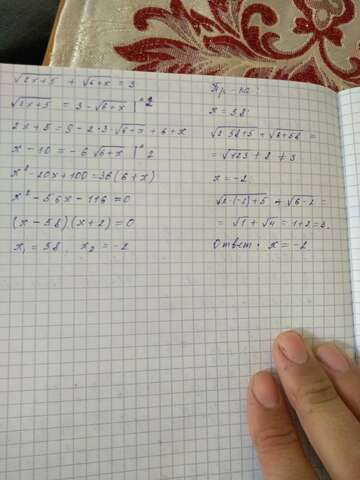 √2x+5 + √6+x = 3
√2x+5 = 3 - √6+x |^2
2x + 5 = 9 - 2·3·√6+x + 6 + x
x - 10 = -6 √6+x |^2
x² - 20x + 100 = 36 (6 + x)
x² - 56x - 116 = 0
(x - 58) (x + 2) = 0
x₁ = 58, x₂ = -2
x = 58:
√2·58+5 + √6+58 =
= √121 + 8 ≠ 3
x = -2:
√2·(-2)+5 + √6-2 =
= √1 + √4 = 1+2 = 3.
Ответ: x = -2